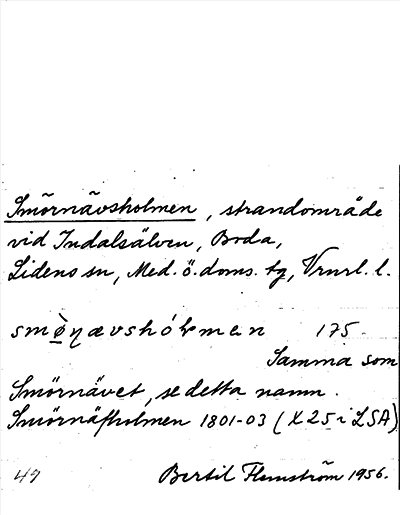 Smörnävsholmen, strandområde
vid Indalsälven, Boda,
Lidens sn, Med. ö. doms. tg, Vrnrl. l.
smö̀ņævshól̥men 175
Samma som
Smörnävet, se detta namn.
Smörnäfholmen 1801-03 (X25 i LSA)
49 Bertil Flemström 1956.